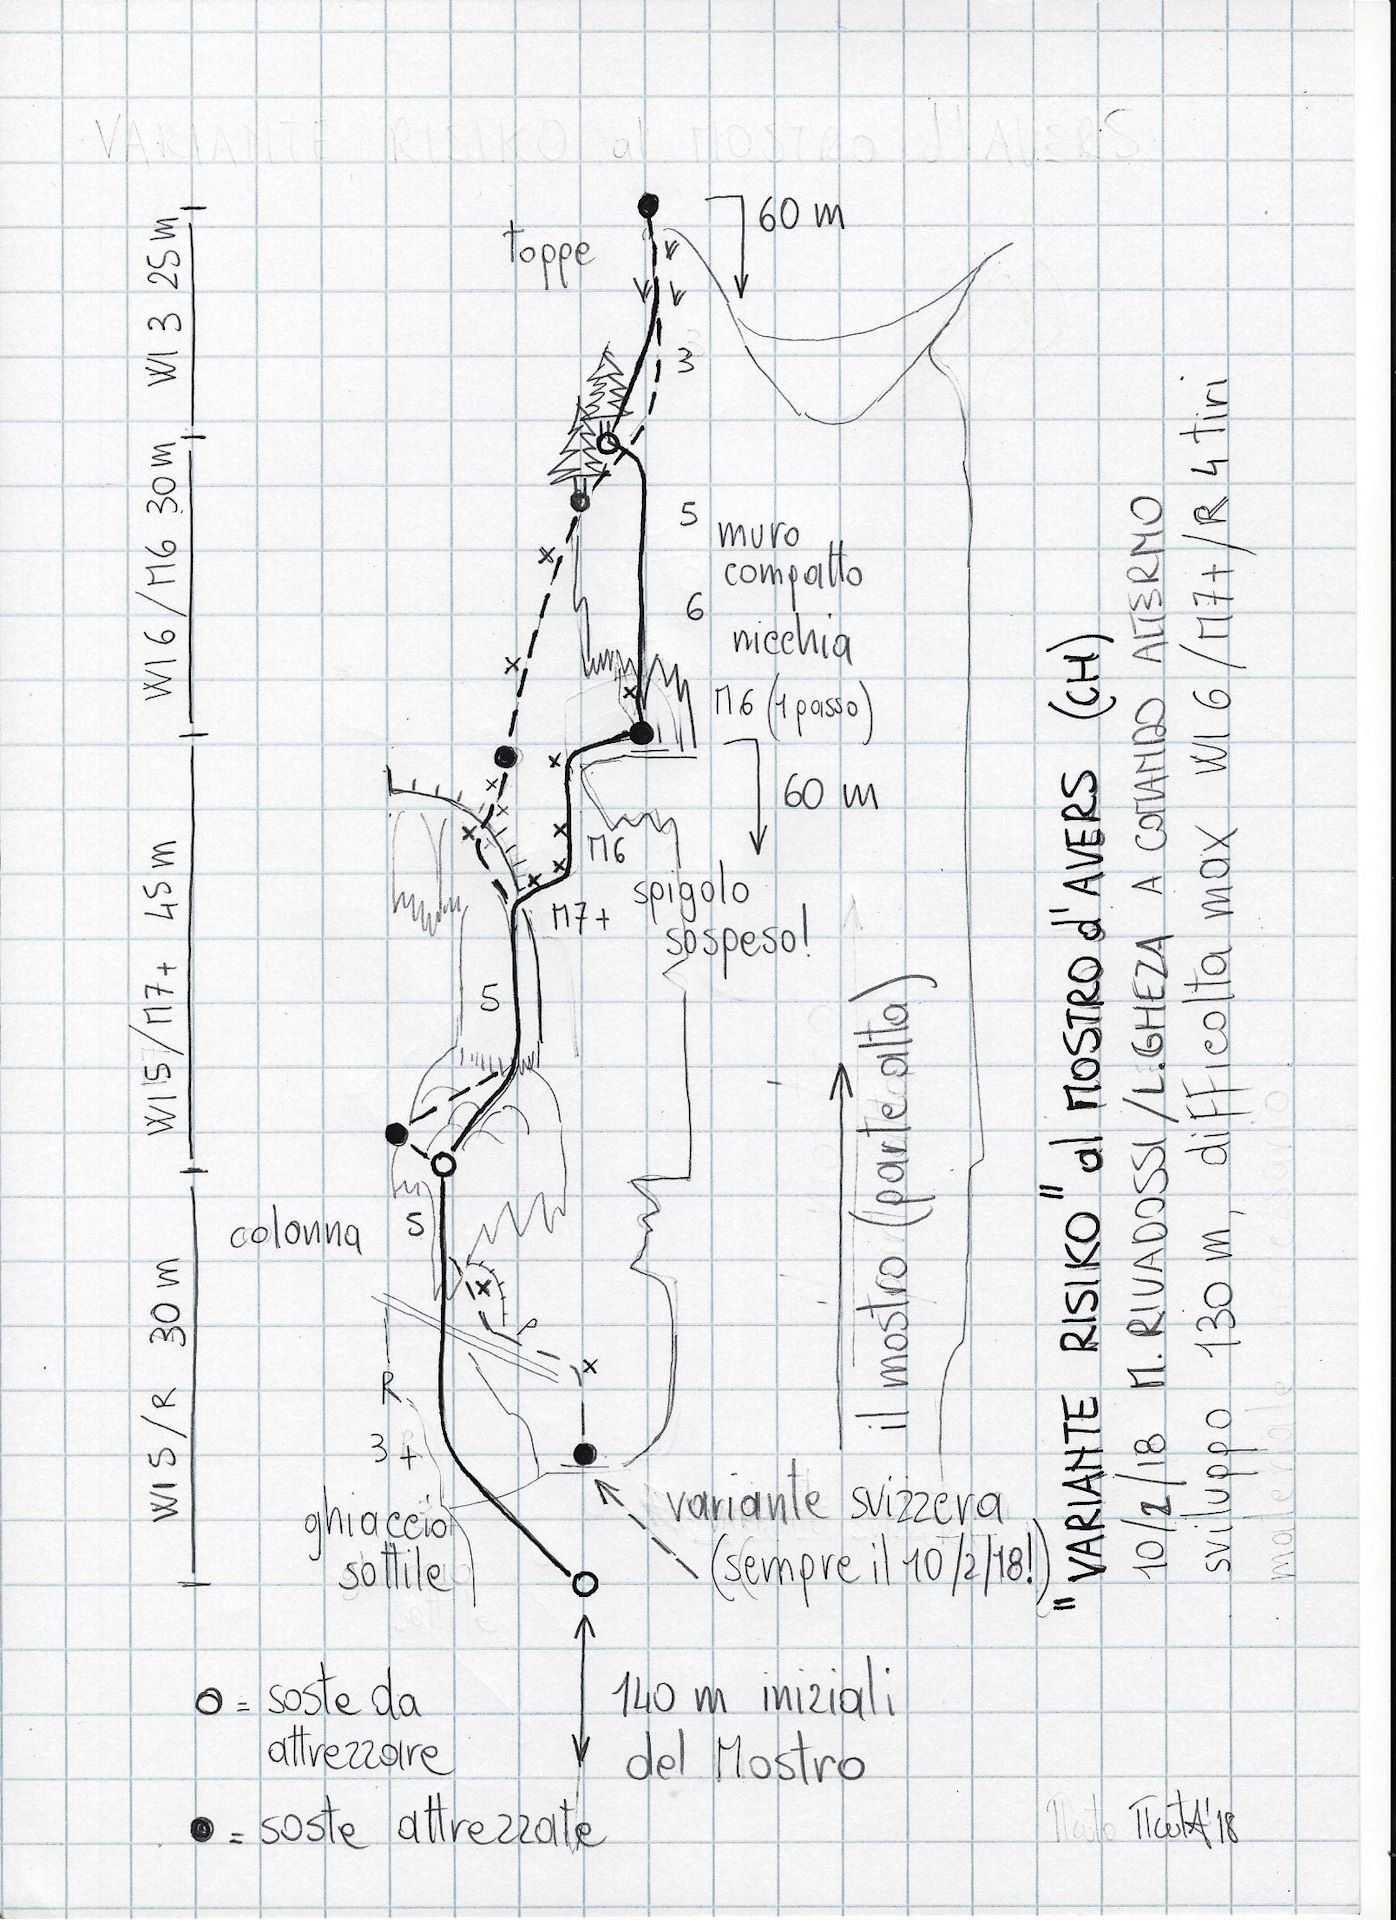 VARIANTE RISIKO al MOSTRO d'AVERS
60 m
toppe
WI 3 25 m
3
WI 6 / M6 30 m
5
muro
compatto
6
nicchia
M6 (1 passo)
60 m
WI 5 / M7+ 45 m
M6
M7+
spigolo
sospeso!
5
5
colonna
WI 5 / R 30 m
R
3+
ghiaccio
sottile
il mostro (parte alta)
variante svizzera
(sempre il 10/2/18!)
"VARIANTE RISIKO" al MOSTRO d'AVERS (CH)
10/2/18 M. RIVADOSSI / L. GHEZA A COMANDO ALTERNO
sviluppo 130 m, difficolta max WI 6 / M7+ / R 4 tiri
materiale
140 m iniziali
del Mostro
= soste da
attrezzare
= soste attrezzate
'18